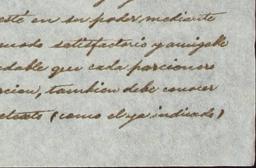 esté en su poder, mediante
modo satisfactorio y amigable
dable que cada porcionero
cion, tambien debe conocer
(como el ya indicado)